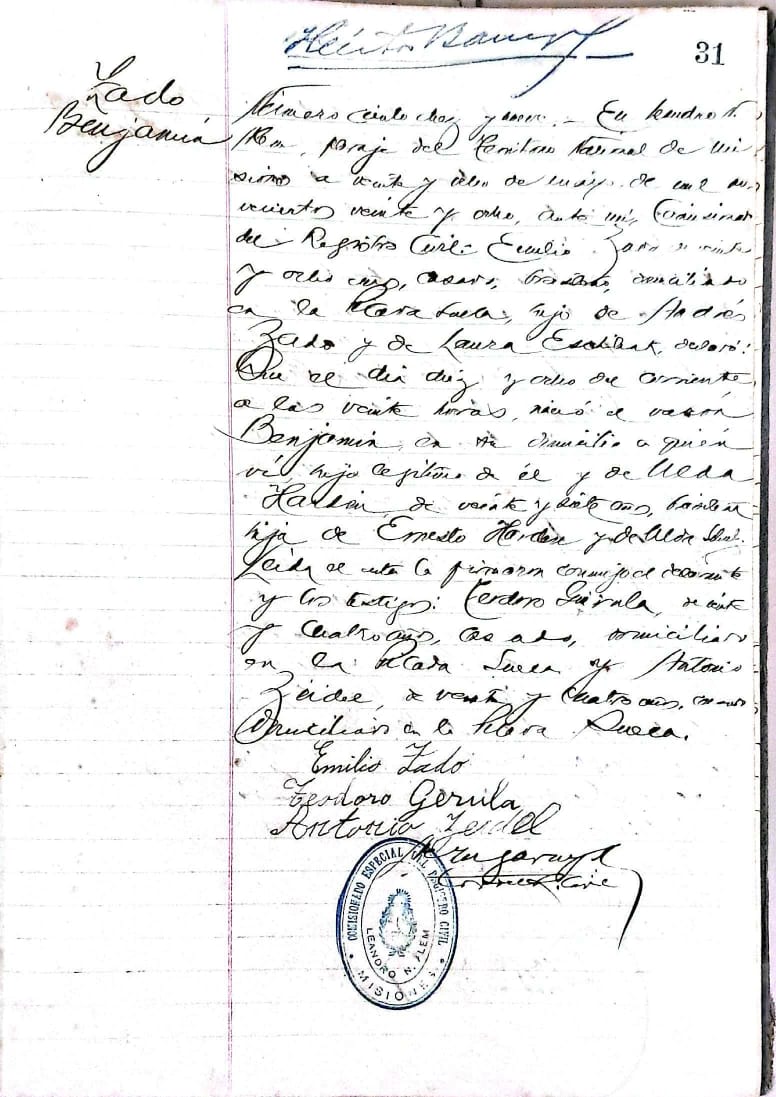 31
Zado
Benjamín
Número ciento diez y nueve. En Leandro N.
Alem, paraje del Territorio Nacional de Mi
siones a veinte y ocho de mayo de mil no
vecientos veinte y ocho, ante mi, Comisionado
del Registro Civil: Emilio Zado de veinte
y ocho años, casado, brasileño, domiciliado
en la Picada Sueca, hijo de Andrés
Zado y de Laura declaró:
Que el día diez y ocho del corriente
a las veinte horas, nació el varón
Benjamin, en su domicilio a quién
ví, hijo legítimo de él y de Alda
de veinte y siete años, brasileña
hija de Ernesto y de Alda
Leida el acta la firmaron conmigo el declarante
y los testigos: Teodoro Gerula, de veinte
y cuatro años, casado, domiciliado
en la Picada Sueca y Antonio
Zeidel, de veinte y cuatro años, casado
domiciliado en la Picada Sueca.
Emilio Zado
Teodoro Gerula
Antonio Zeidel
COMISIONADO ESPECIAL DEL REGISTRO CIVIL
LEANDRO N. ALEM
MISIONES